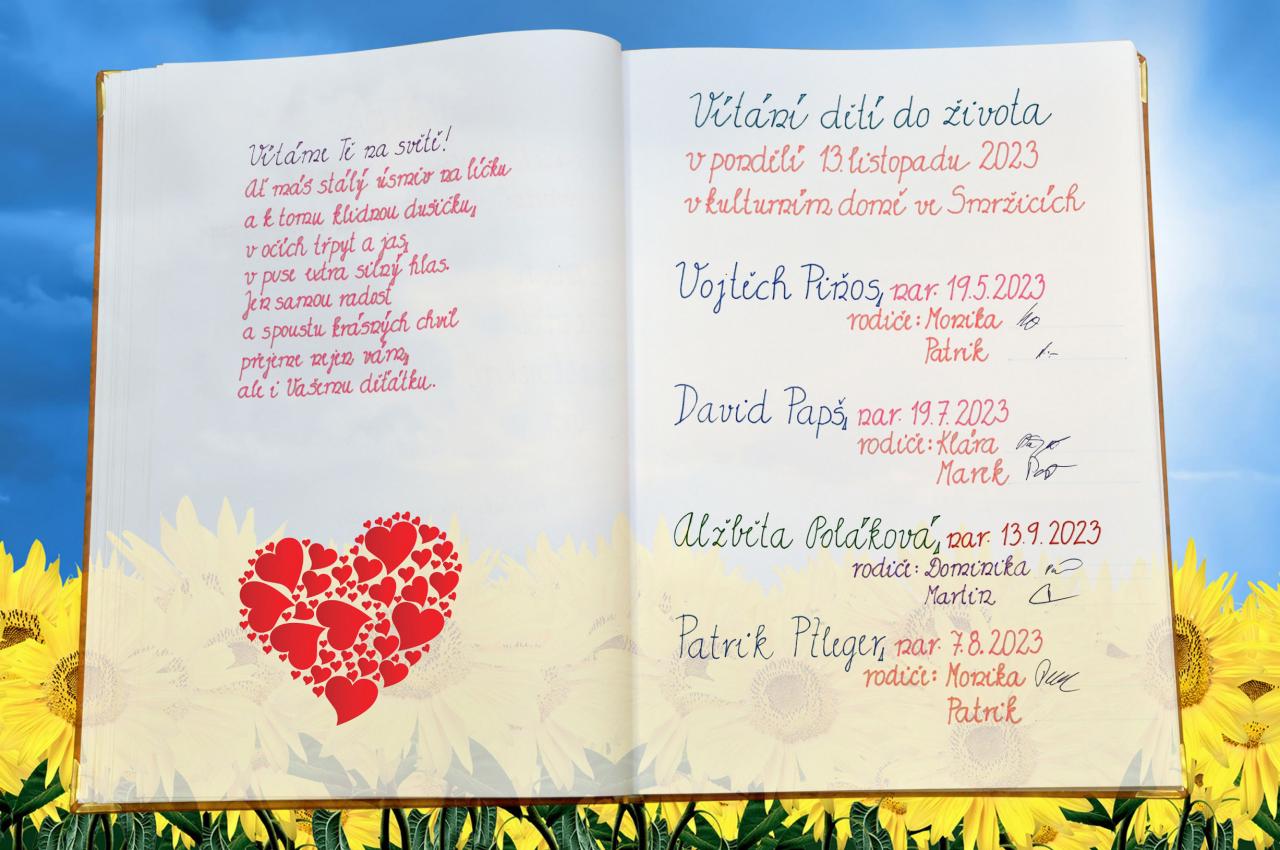 Vítáme Ti na světě!
Ať máš stálý úsměv na líčku
a k tomu klidnou dušičku,
v očích třpyt a jas,
v puse extra silný hlas.
Jen samou radost
a spoustu krásných chvil
přejeme nejen vám,
ale i Vašemu děťátku.
Vítání dětí do života
v pondělí 13. listopadu 2023
v kulturním domě ve Smržicích
Vojtěch Piňos, nar. 19.5.2023
rodiče: Monika
Patrik
David Papš, nar. 19.7.2023
rodiče: Klára
Marek
Alžběta Poláková, nar. 13.9.2023
rodiče: Dominika
Martin
Patrik Pfleger, nar. 7.8.2023
rodiče: Monika
Patrik